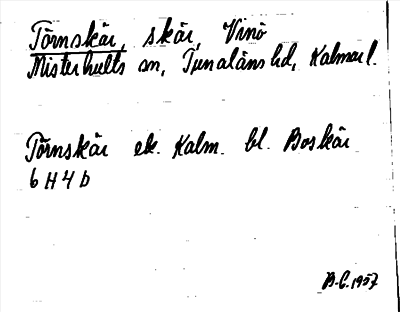 Törnskär, skär, Vinö
Misterhults sn, Tunaläns hd, Kalmar l.
Törnskär ek. Kalm. bl. Boskär
6 H 4 b
B-C. 1957